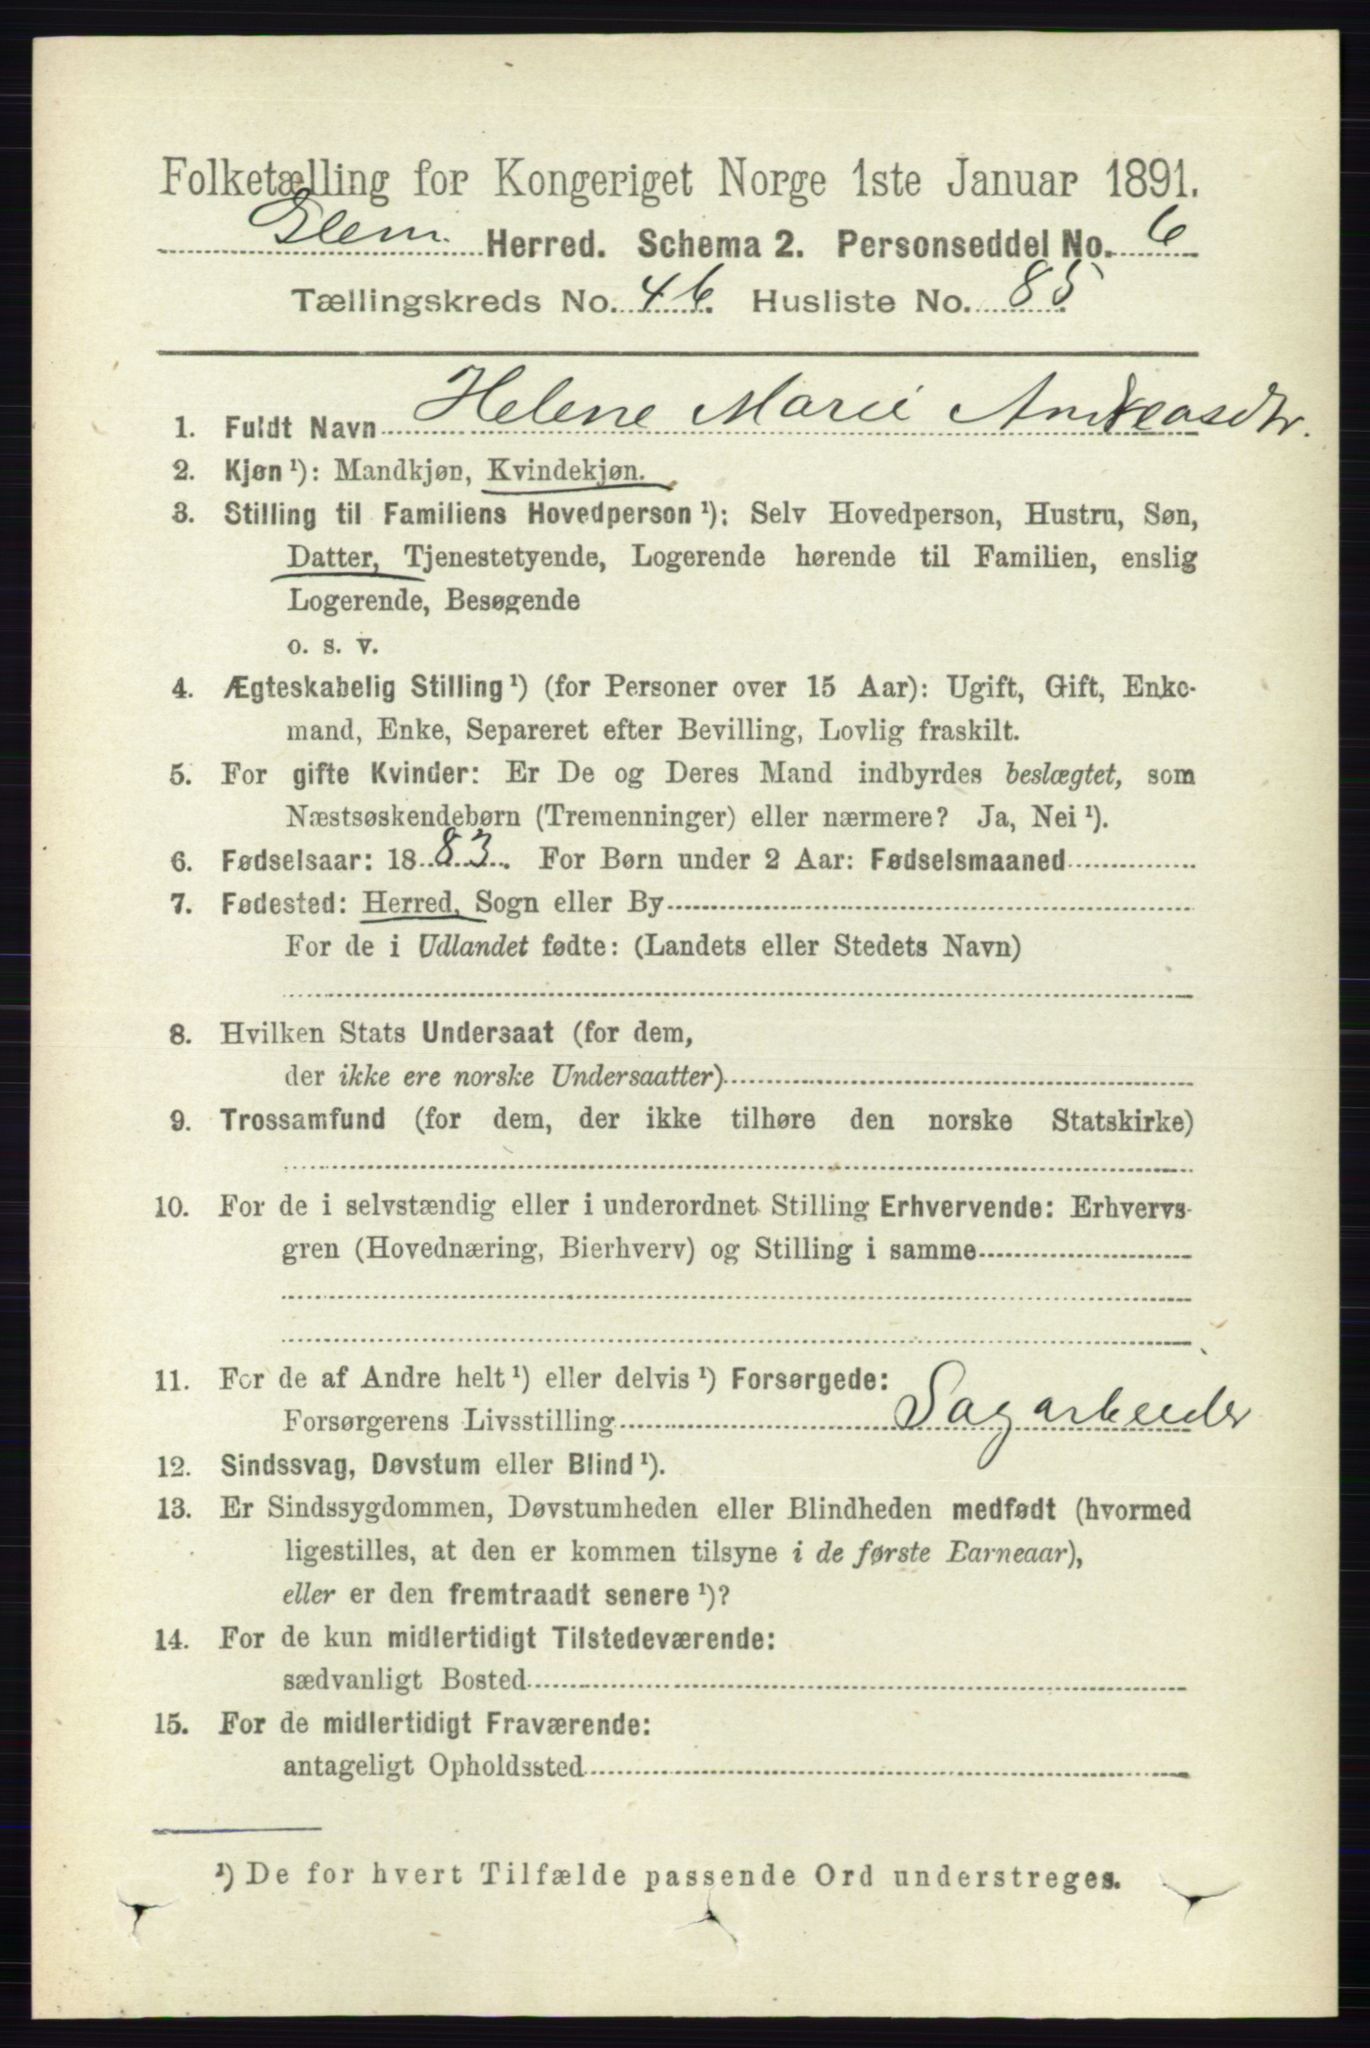 Folketælling for Kongeriget Norge 1ste Januar 1891.
Glem. Herred. Schema 2. Personseddel No. 6
Tællingskreds No. 46. Husliste No. 85
1. Fuldt Navn Helene Marie Andreasdtr.
2. Kjøn ¹): Mandkjøn, Kvindekjøn.
3. Stilling til Familiens Hovedperson ¹): Selv Hovedperson, Hustru, Søn,
Datter, Tjenestetyende, Logerende hørende til Familien, enslig
Logerende, Besøgende
o. s. v.
4. Ægteskabelig Stilling ¹) (for Personer over 15 Aar): Ugift, Gift, Enke-
mand, Enke, Separeret efter Bevilling, Lovlig fraskilt.
5. For gifte Kvinder: Er De og Deres Mand indbyrdes beslægtet, som
Næstsøskendebørn (Tremenninger) eller nærmere? Ja, Nei ¹).
6. Fødselsaar: 1883. For Børn under 2 Aar: Fødselsmaaned
7. Fødested: Herred, Sogn eller By
For de i Udlandet fødte: (Landets eller Stedets Navn)
8. Hvilken Stats Undersaat (for dem,
der ikke ere norske Undersaatter)
9. Trossamfund (for dem, der ikke tilhøre den norske Statskirke)
10. For de i selvstændig eller i underordnet Stilling Erhvervende: Erhvervs-
gren (Hovednæring, Bierhverv) og Stilling i samme
11. For de af Andre helt ¹) eller delvis ¹) Forsørgede:
Forsørgerens Livsstilling Sagarbeider
12. Sindssvag, Døvstum eller Blind ¹).
13. Er Sindssygdommen, Døvstumheden eller Blindheden medfødt (hvormed
ligestilles, at den er kommen tilsyne i de første Barneaar),
eller er den fremtraadt senere ¹)?
14. For de kun midlertidigt Tilstedeværende:
sædvanligt Bosted
15. For de midlertidigt Fraværende:
antageligt Opholdssted
¹) De for hvert Tilfælde passende Ord understreges.